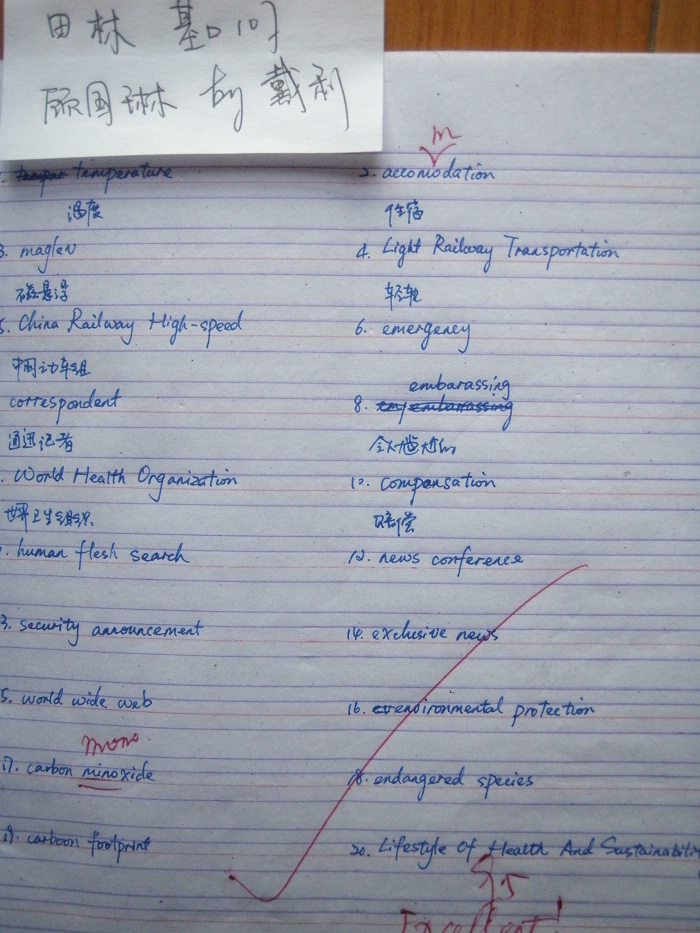 田林
顾国琳 by 戴利
m
temperature 2. accomodation
温度 住宿
3. maglev 4. Light Railway Transportation
磁悬浮 轻轨
5. China Railway High-speed 6. emergency
中国动车组 embarassing
correspondent 8.
通迅记者 尴尬的
. World Health Organization 10. compensation
世界卫生组织 赔偿
1. human flesh search 12. news conference
3. security announcement 14. exclusive news
5. world wide web 16. environmental protection
mono
17. carbon minoxide 18. endangered species
19. carboon footprint 20. Lifestyle Of Health And Sustainability
Excellent!